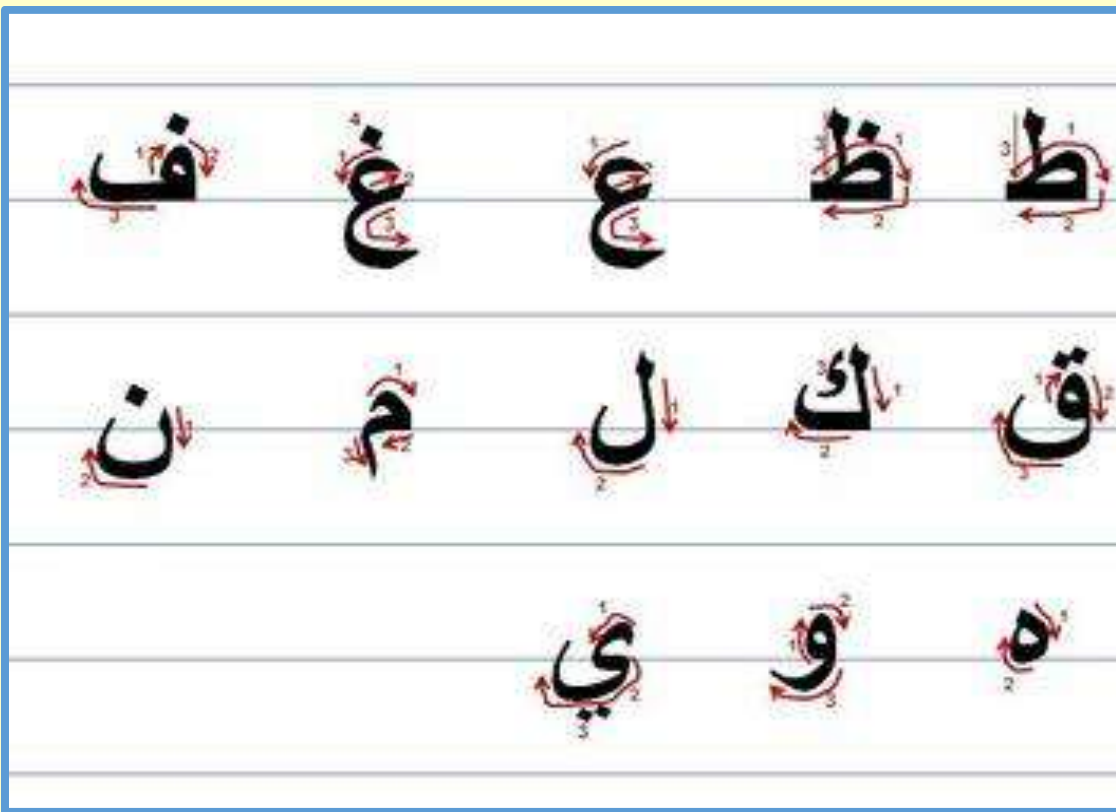 ط ظ ع غ ف
ق ك ل م ن
ه و ي